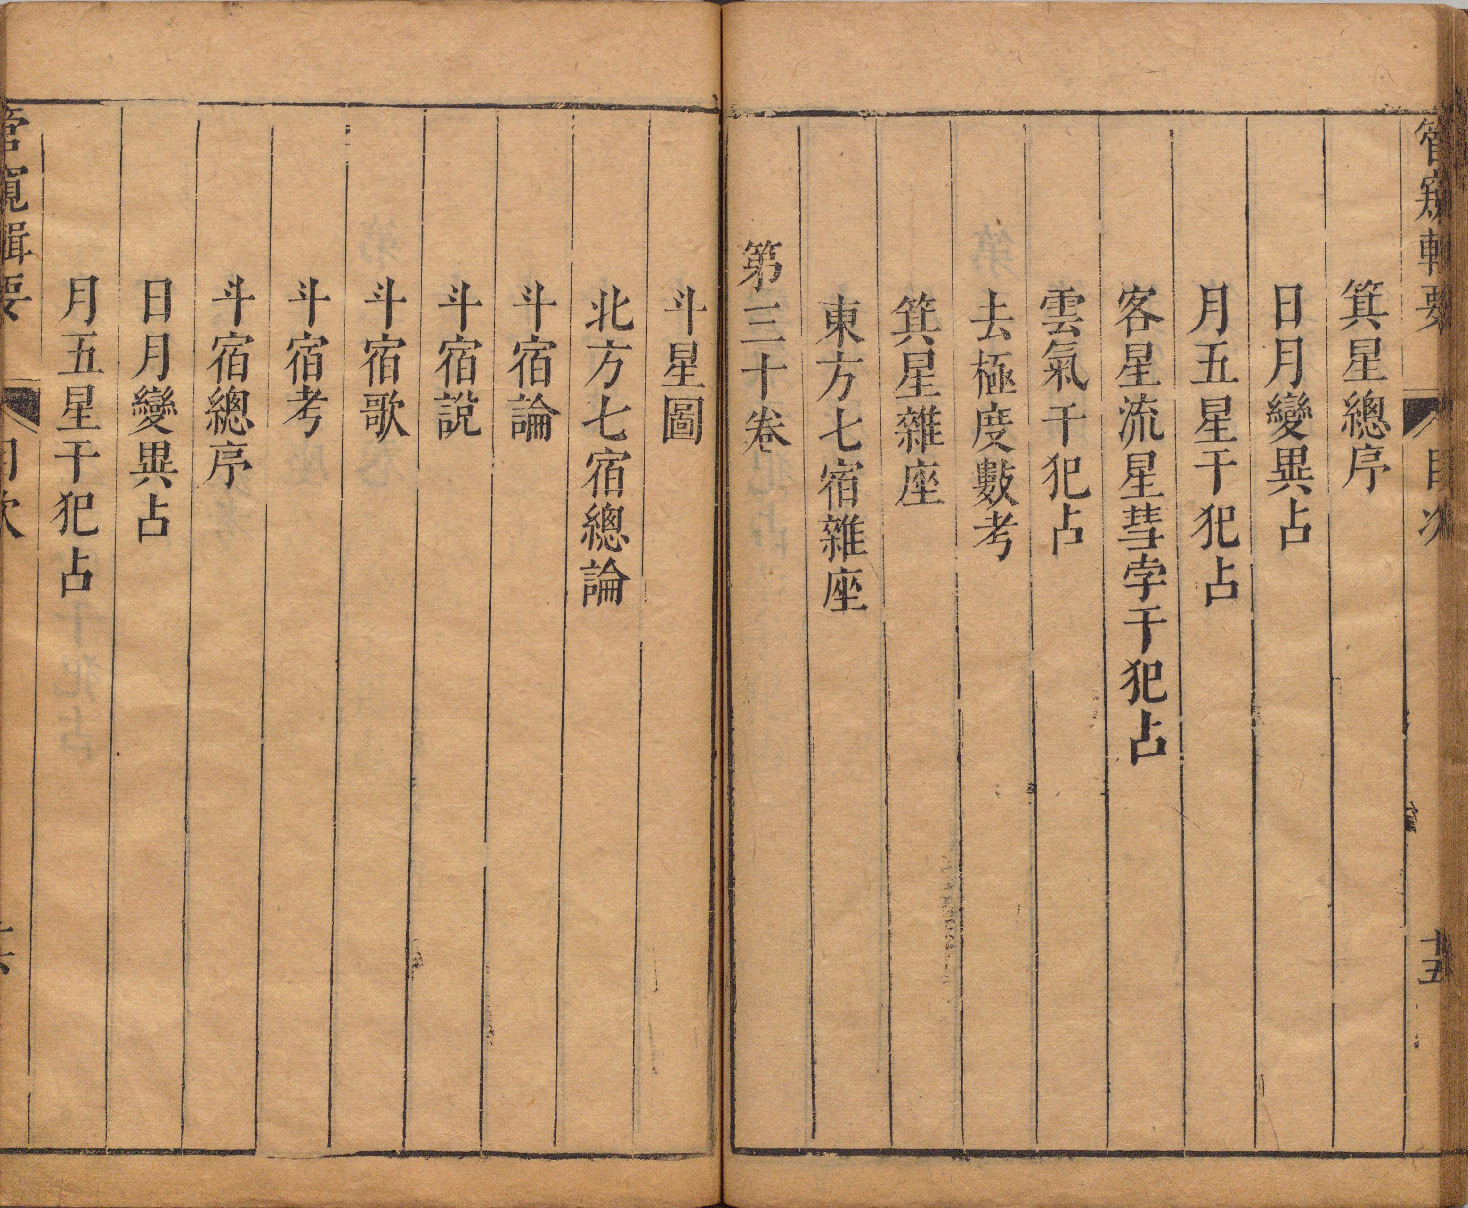 管窺輯要 目次 十五
箕星總序
日月變異占
月五星干犯占
客星流星彗孛干犯占
雲氣干犯占
去極度數考
箕星雜座
東方七宿雜座
第三十卷
斗星圖
北方七宿總論
斗宿論
斗宿說
斗宿歌
斗宿考
斗宿總序
日月變異占
月五星干犯占
管窺輯要 目次